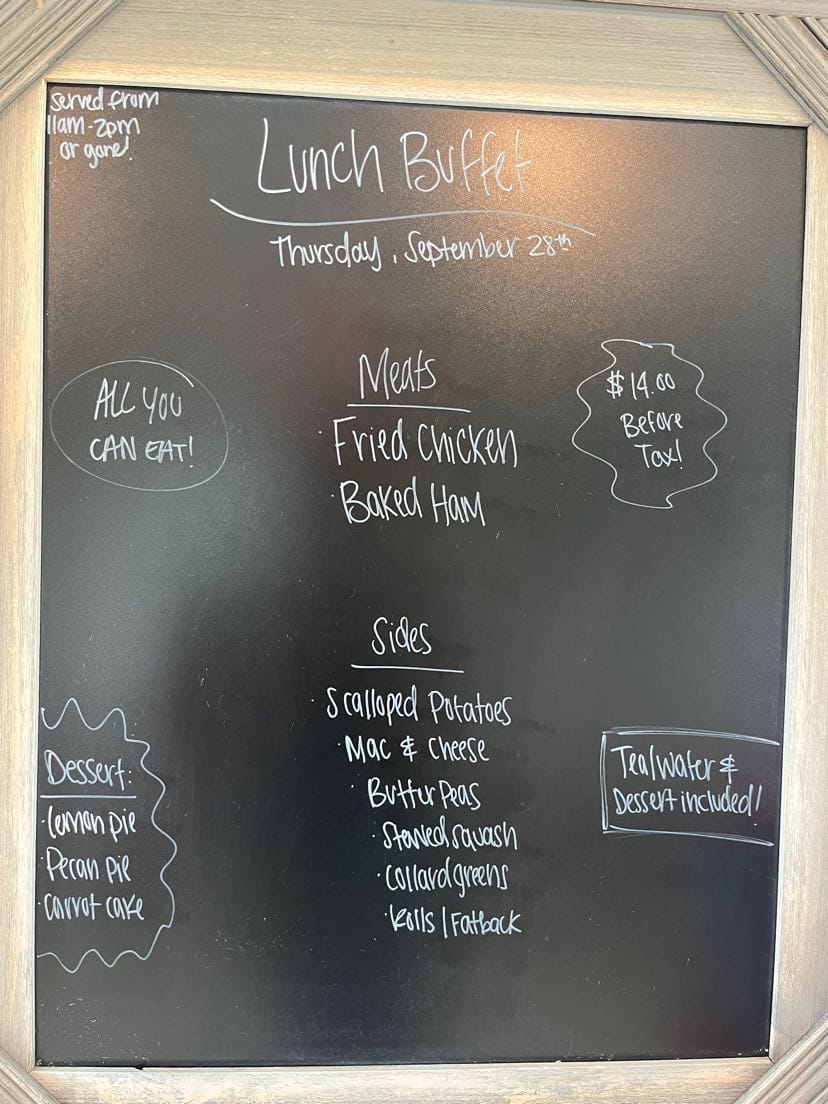 served from
11am-2pm
or gone!
Lunch Buffet
Thursday, September 28th
Meats
Fried Chicken
Baked Ham
ALL YOU
CAN EAT!
$14.00
Before
Tax!
Sides
Scalloped Potatoes
Mac & Cheese
Butter Peas
Stewed squash
Collard greens
Rolls | Fatback
Dessert:
Lemon pie
Pecan pie
Carrot cake
Tea/Water &
Dessert included!